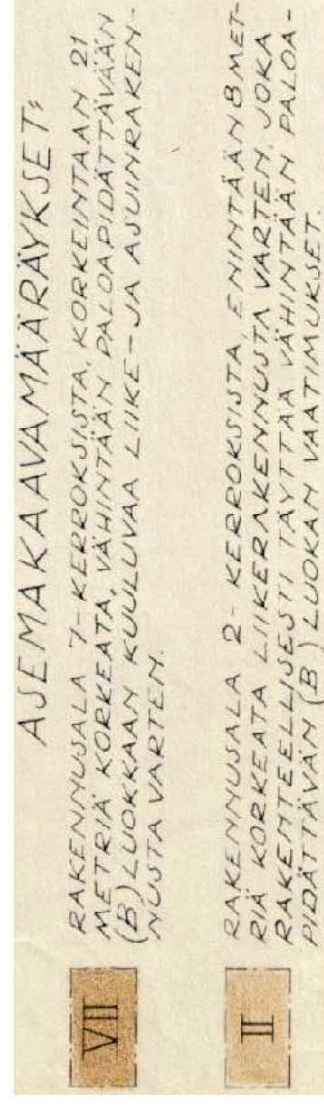 ASEMAKAAVAMÄÄRÄYKSET:
VII
RAKENNUSALA 7-KERROKSISTA, KORKEINTAAN 21
METRIÄ KORKEATA, VÄHINTÄÄN PALOAPIDÄTTÄVÄÄN
(B) LUOKKAAN KUULUVAA LIIKE- JA ASUINRAKEN-
NUSTA VARTEN.
II
RAKENNUSALA 2- KERROKSISTA, ENINTÄÄN 8 MET-
RIÄ KORKEATA LIIKERAKENNUSTA VARTEN, JOKA
RAKENTEELLISESTI TÄYTTÄÄ VÄHINTÄÄN PALOA-
PIDÄTTÄVÄN (B) LUOKAN VAATIMUKSET.